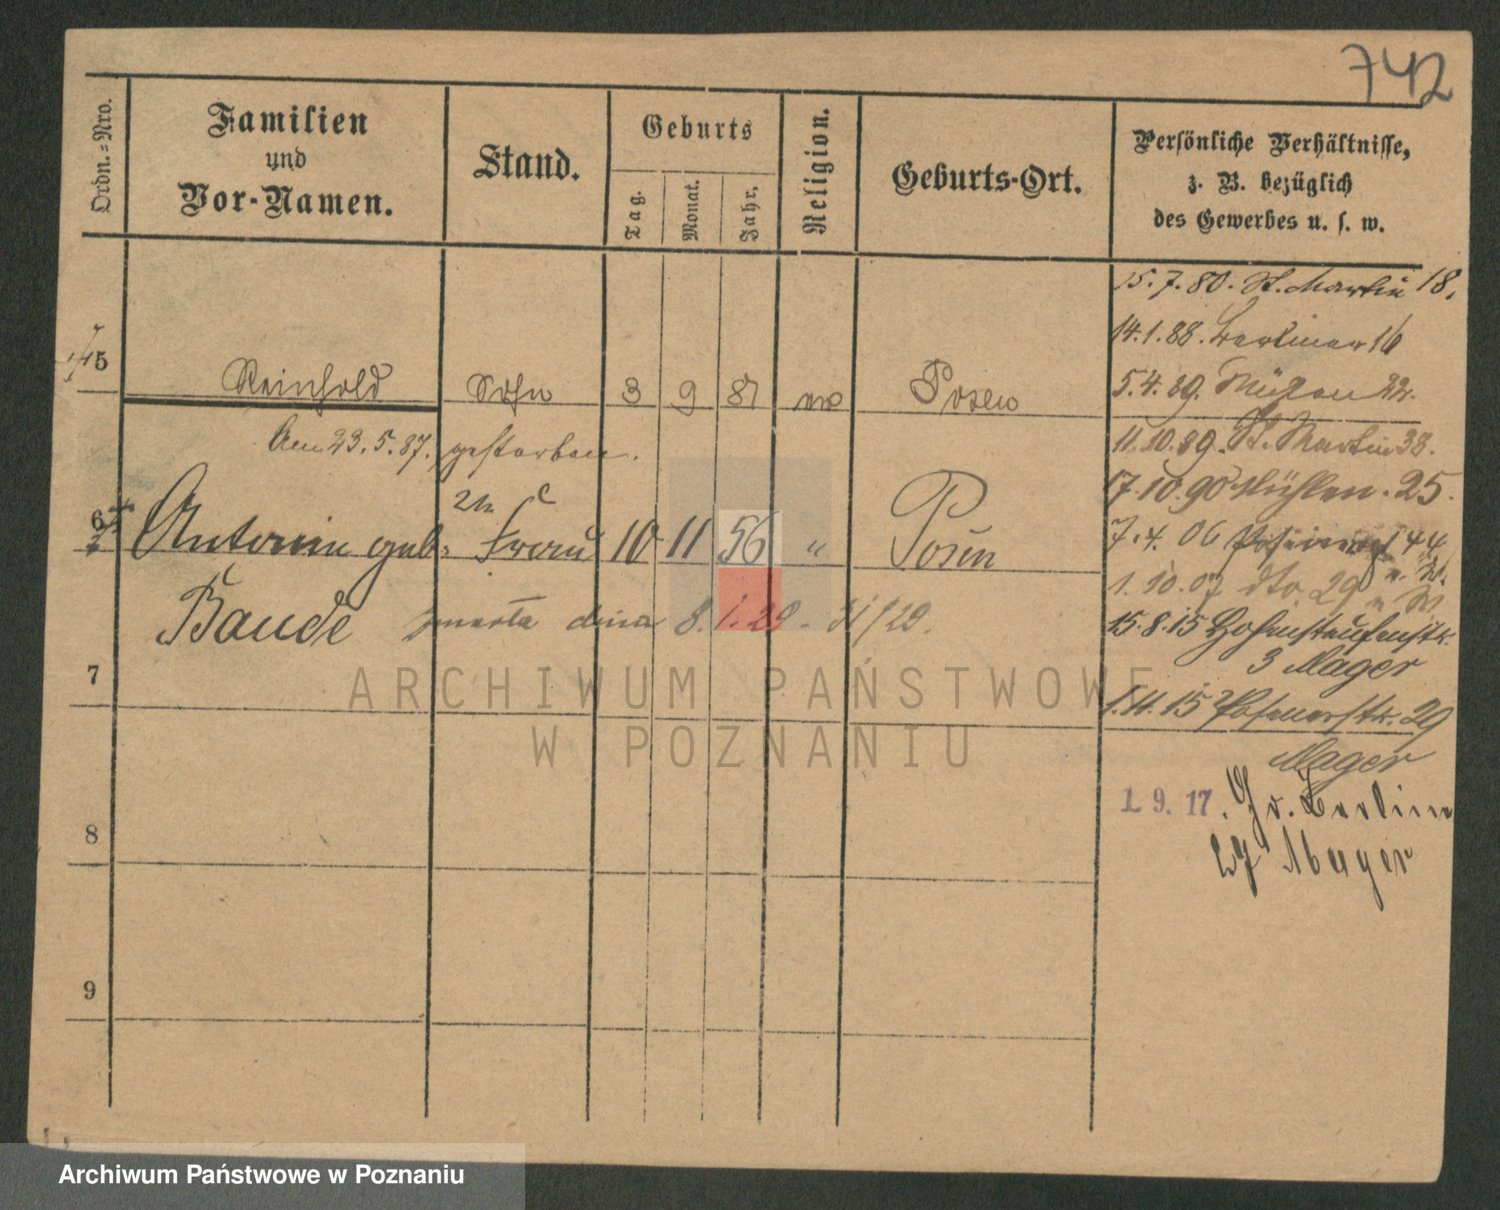 742
Ordn.-Nro.
Familien
und
Vor-Namen.
Stand.
Geburts
Tag.
Monat.
Jahr.
Religion.
Geburts-Ort.
Persönliche Verhältnisse,
z. B. bezüglich
des Gewerbes u. s. w.
15.7.80. St. Martin 18.
14.1.88. Berliner 16
5.4.89. Mühlen 22.
5 Reinhold Sohn 3 9 81 Posen
11.10.89. St. Martin 38.
Am 23.5.87. gestorben.
17.10.90 Mühlen. 25.
2te
6 Antonin geb. Frau 10 11 56 " Posen
7.4.06 44
1.10.07 dto. 29
Baude zmarła dnia 8.1.29.
15.8.15 Hohenstaufenstr.
3 Mager
7
1.11.15 Posenerstr. 29
Mager
1. 9. 17. Gr. Berlin
Mager
8
9
ARCHIWUM PAŃSTWOWE
W POZNANIU
Archiwum Państwowe w Poznaniu